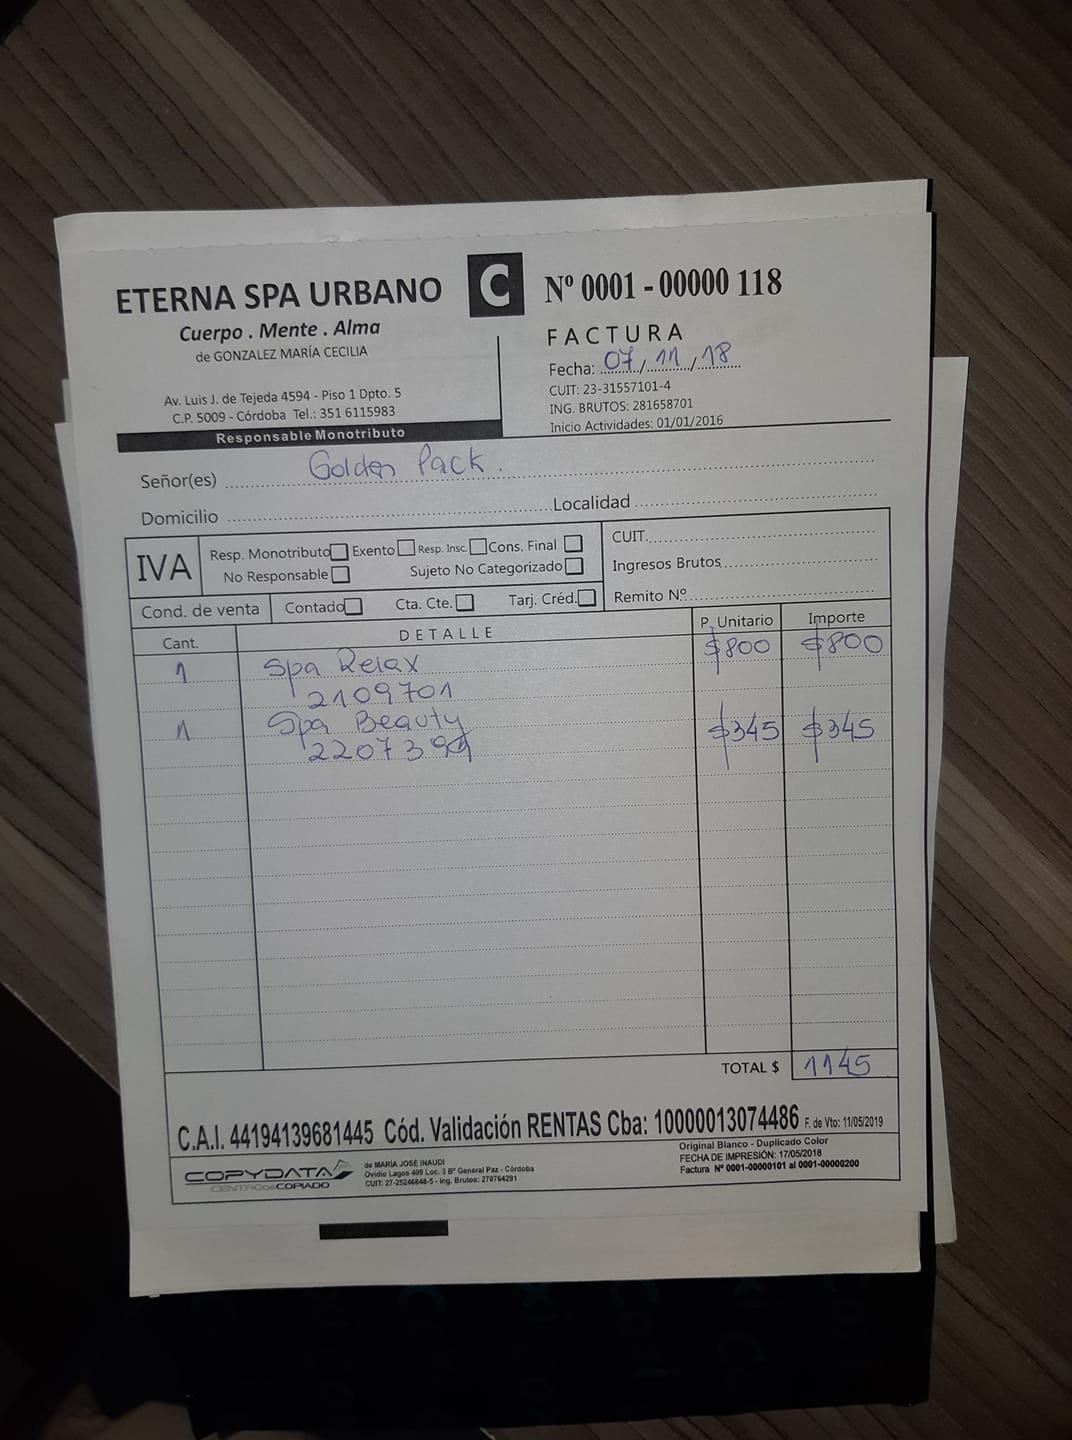 ETERNA SPA URBANO
Cuerpo . Mente . Alma
de GONZALEZ MARÍA CECILIA
Av. Luis J. de Tejeda 4594 - Piso 1 Dpto. 5
C.P. 5009 - Córdoba Tel.: 351 6115983
Responsable Monotributo
C
Nº 0001 - 00000 118
FACTURA
Fecha: 07/11/18
CUIT: 23-31557101-4
ING. BRUTOS: 281658701
Inicio Actividades: 01/01/2016
Señor(es) Golden Pack.
Domicilio Localidad
IVA Resp. Monotributo Exento Resp. Insc. Cons. Final
No Responsable Sujeto No Categorizado
CUIT.
Ingresos Brutos
Cond. de venta Contado Cta. Cte. Tarj. Créd. Remito Nº
Cant. DETALLE P. Unitario Importe
1 Spa Relax $800 $800
2109701
1 Spa Beauty $345 $345
TOTAL $ 1145
C.A.I. 44194139681445 Cód. Validación RENTAS Cba: 10000013074486 F. de Vto: 11/05/2019
COPYDATA
CENTRO DE COPIADO
de MARÍA JOSÉ INAUDI
Ovidio Lagos 409 Loc. 3 Bº General Paz - Córdoba
CUIT: 27-25246848-5 - Ing. Brutos: 270764291
Original Blanco - Duplicado Color
FECHA DE IMPRESIÓN: 17/05/2018
Factura Nº 0001-00000101 al 0001-00000200